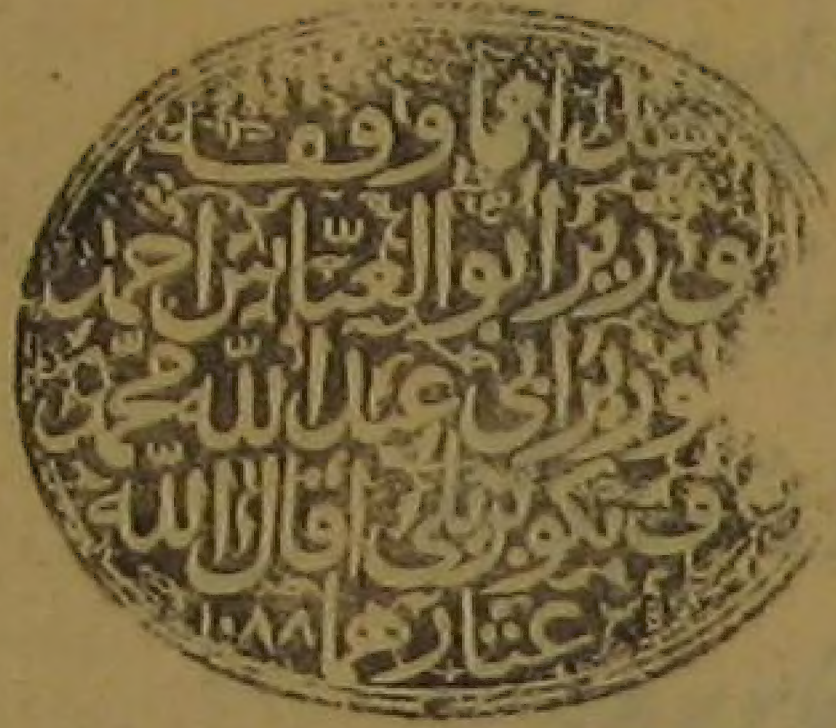 هذا مما وقفه
الوزير ابو العباس احمد
الوزير ابى عبد الله محمّد
بكوبريلى اقال الله
عثارهما ١٠٨٨